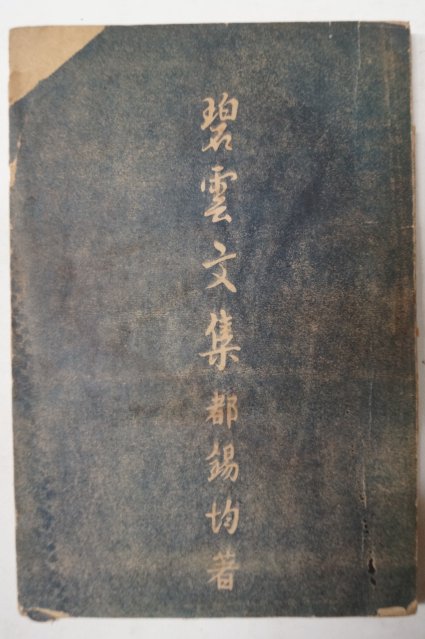 碧雲文集 都錫均著